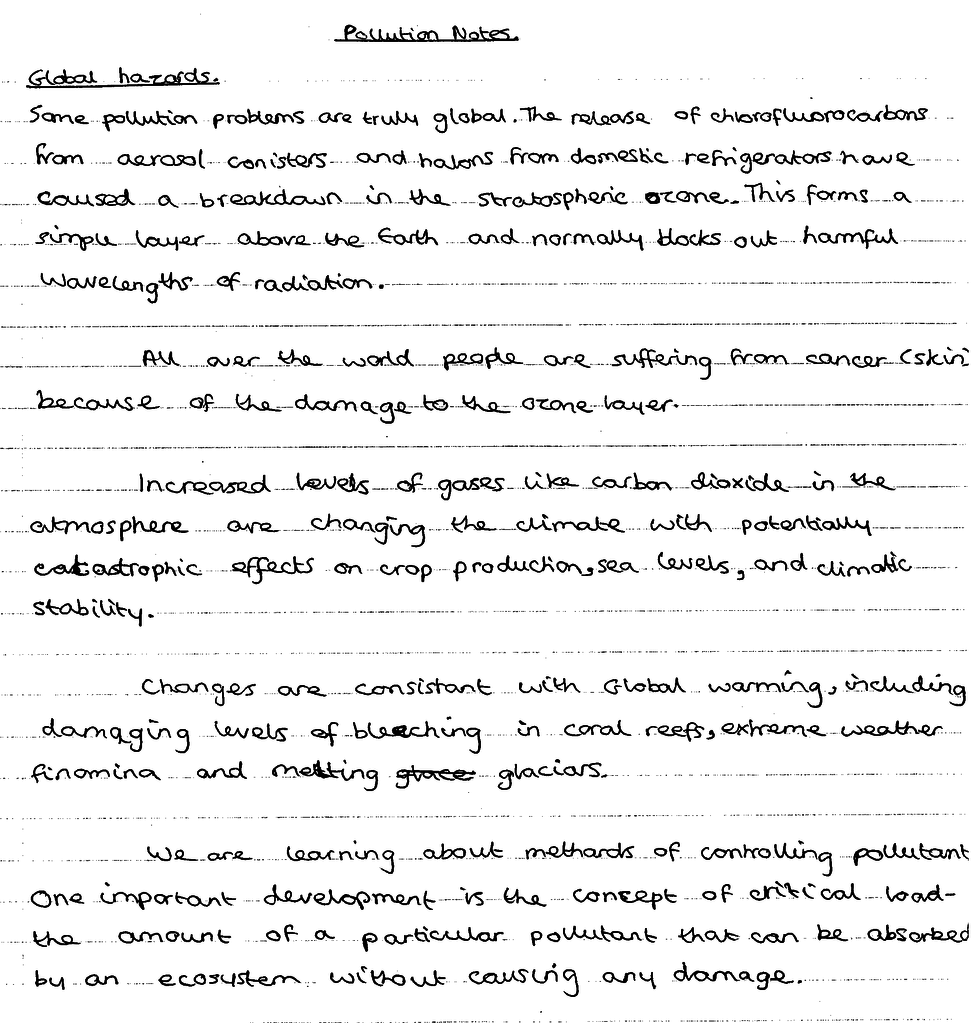 Pollution Notes.
Global hazards.
Some pollution problems are truly global. The release of chlorofluorocarbons
from aerosol conisters and halons from domestic refrigerators have
caused a breakdown in the stratospheric ozone. This forms a
simple layer above the Earth and normally blocks out harmful
Wavelengths of radiation.
All over the world people are suffering from cancer (skin)
because of the damage to the ozone layer.
Increased levels of gases like carbon dioxide in the
atmosphere are changing the climate with potentially
catastrophic effects on crop production, sea levels, and climatic
stability.
Changes are consistant with Global warming, including
damaging levels of bleaching in coral reefs, extreme weather
finomina and melting glaciars.
We are learning about methards of controlling pollutant
One important development is the concept of critical load-
the amount of a particular pollutant that can be absorbed
by an ecosystem without causing any damage.